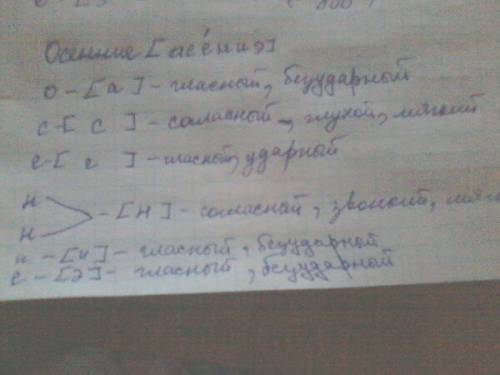 Осенние [асе́ниэ]
о - [а] - гласный, безударный
с - [с] - согласный, глухой, мягкий
е - [е] - гласный, ударный
н
н - [н] - согласный, звонкий,
и - [и] - гласный, безударной
е - [э] - гласный, безударной